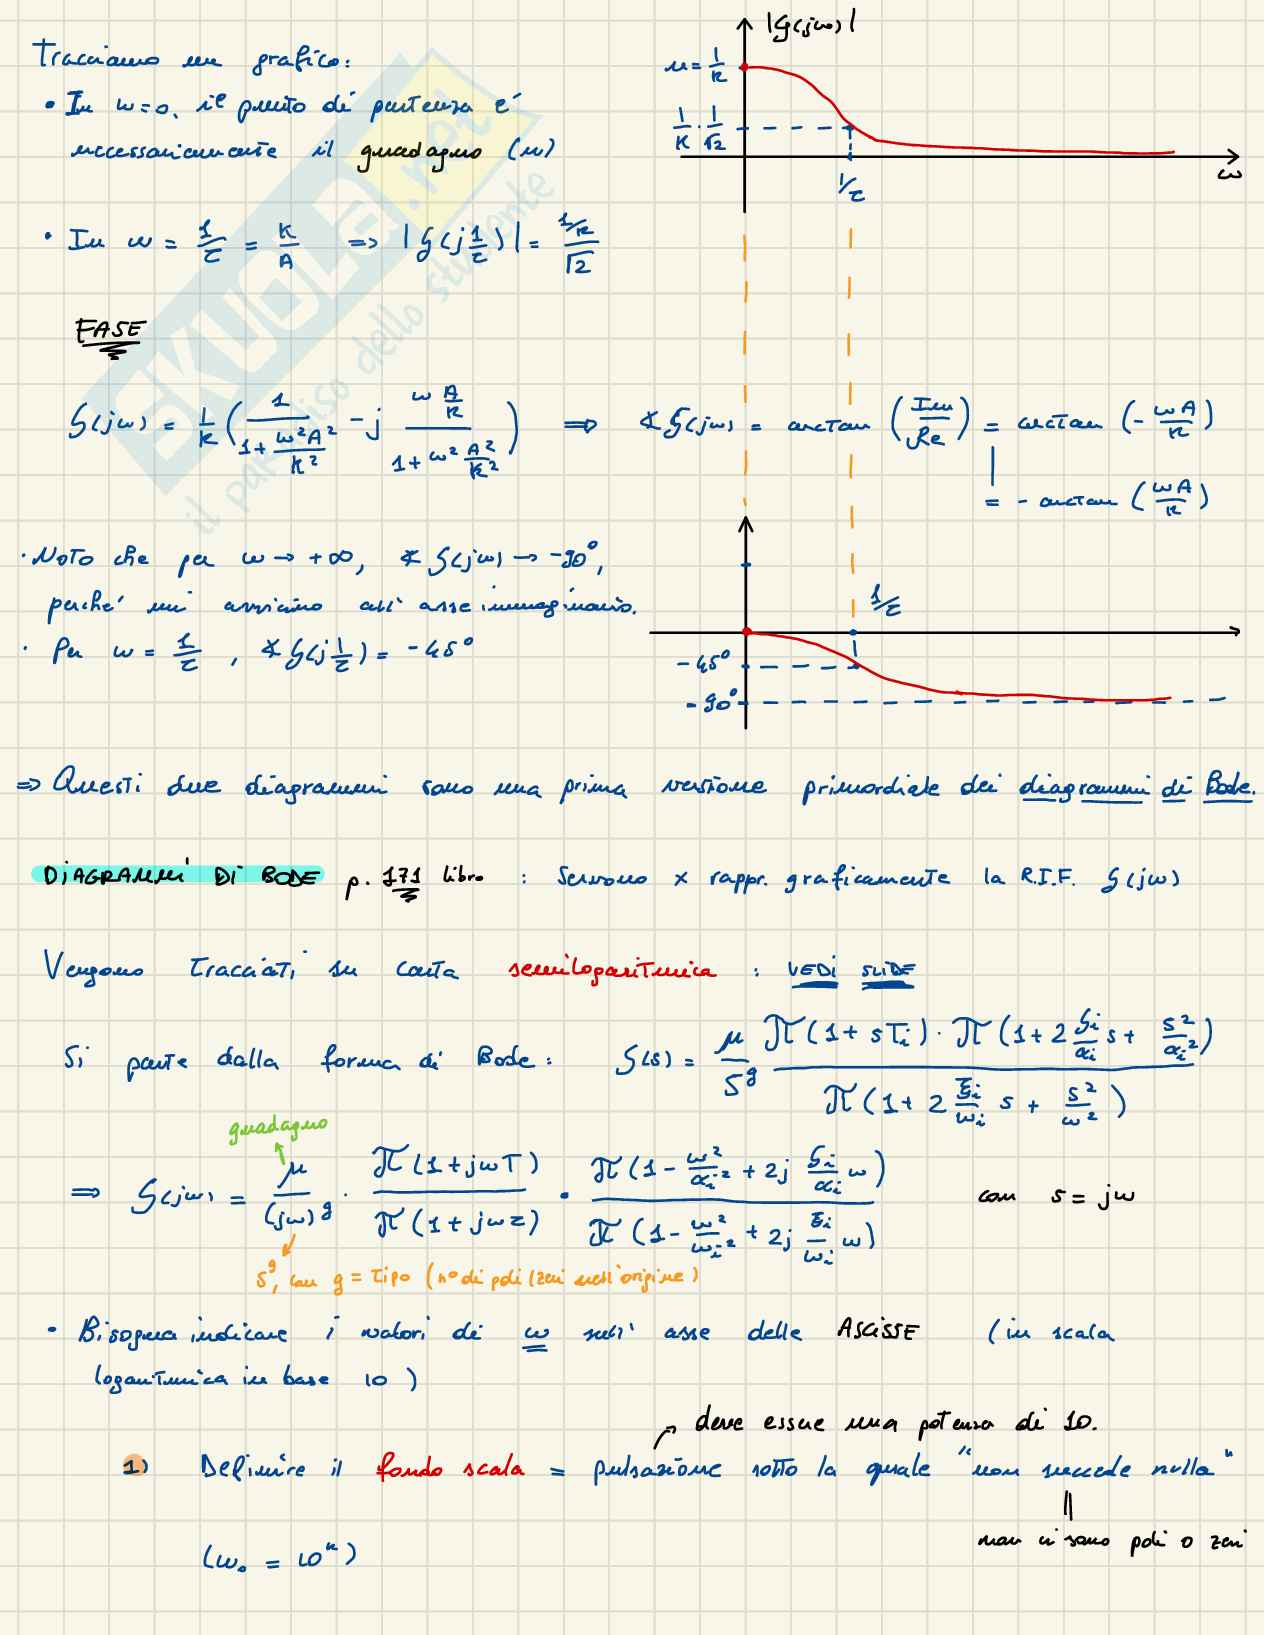 Tracciamo un grafico:
• In ω=0, il punto di partenza é
necessariamente il guadagno (μ)
• In ω = 1/τ = K/A ⇒ |G(j 1/τ)| = (1/K)/√2
|G(jω)|
μ = 1/K
1/K · 1/√2
1/τ
ω
FASE
G(jω) = 1/K (1/(1 + ω²A²/K²) - j (ω A/K)/(1 + ω² A²/K²)) ⇒ ∢G(jω) = arctan (Im/Re) = arctan (- ωA/K)
= - arctan (ωA/K)
· Noto che per ω → +∞, ∢G(jω) → -90°,
perché mi avvicino all'asse immaginario.
· Per ω = 1/τ, ∢G(j 1/τ) = -45°
1/τ
-45°
-90°
⇒ Questi due diagrammi sono una prima versione primordiale dei diagrammi di Bode.
DIAGRAMMI DI BODE p. 171 libro : Servono x rappr. graficamente la R.I.F. G(jω)
Vengono tracciati su carta semilogaritmica : VEDI SLIDE
Si parte dalla forma di Bode: G(s) = μ/s^g π(1 + sTi) · π(1 + 2 ζi/αi s + s²/αi²) / π(1 + 2 ξi/ωi s + s²/ω²)
guadagno
⇒ G(jω) = μ/(jω)^g · π(1+jωT)/π(1+jωτ) · π(1 - ω²/αi² + 2j ζi/αi ω)/π(1 - ω²/ωi² + 2j ξi/ωi ω) con s = jω
s^g, con g = tipo (n° di poli/zeri nell'origine)
• Bisogna indicare i valori di ω sull'asse delle ASCISSE (in scala
logaritmica in base 10)
deve essere una potenza di 10.
1) Definire il fondo scala = pulsazione sotto la quale "non succede nulla"
non ci sono poli o zeri
(ω₀ = 10^k)
SKUOLA.net
il paradiso dello studente